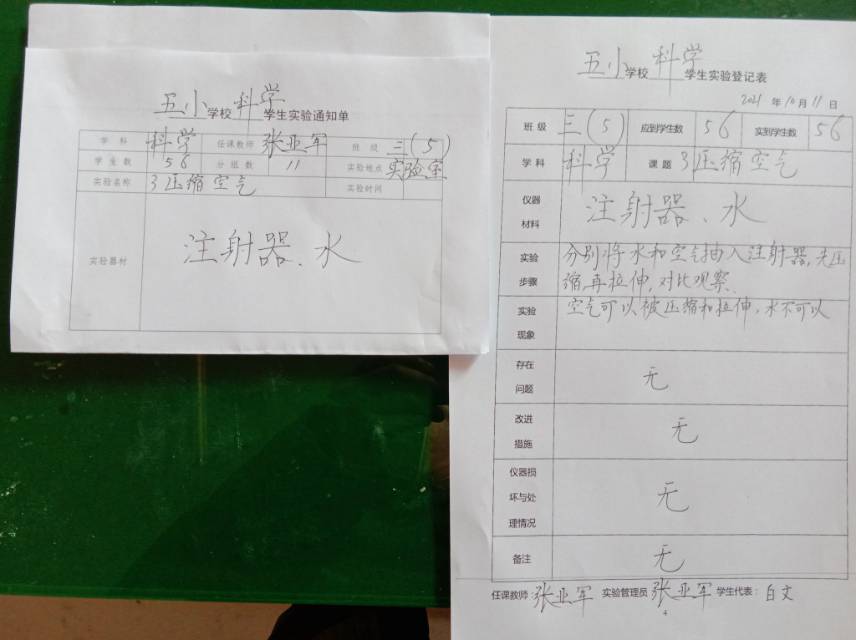 五小学校科学学生实验通知单
学科 科学 任课教师 张亚军 班级 三(5)
学生数 56 分组数 11 实验地点 实验室
实验名称 3压缩空气 实验时间
实验器材 注射器、水
五小学校科学学生实验登记表
2021年10月11日
班级 三(5) 应到学生数 56 实到学生数 56
学科 科学 课题 3压缩空气
仪器
材料
注射器、水
实验
步骤
分别将水和空气抽入注射器,先压
缩,再拉伸,对比观察.
实验
现象
空气可以被压缩和拉伸,水不可以
存在
问题
无
改进
措施
无
仪器损
坏与处
理情况
无
备注 无
任课教师:张亚军 实验管理员 张亚军 学生代表:白文